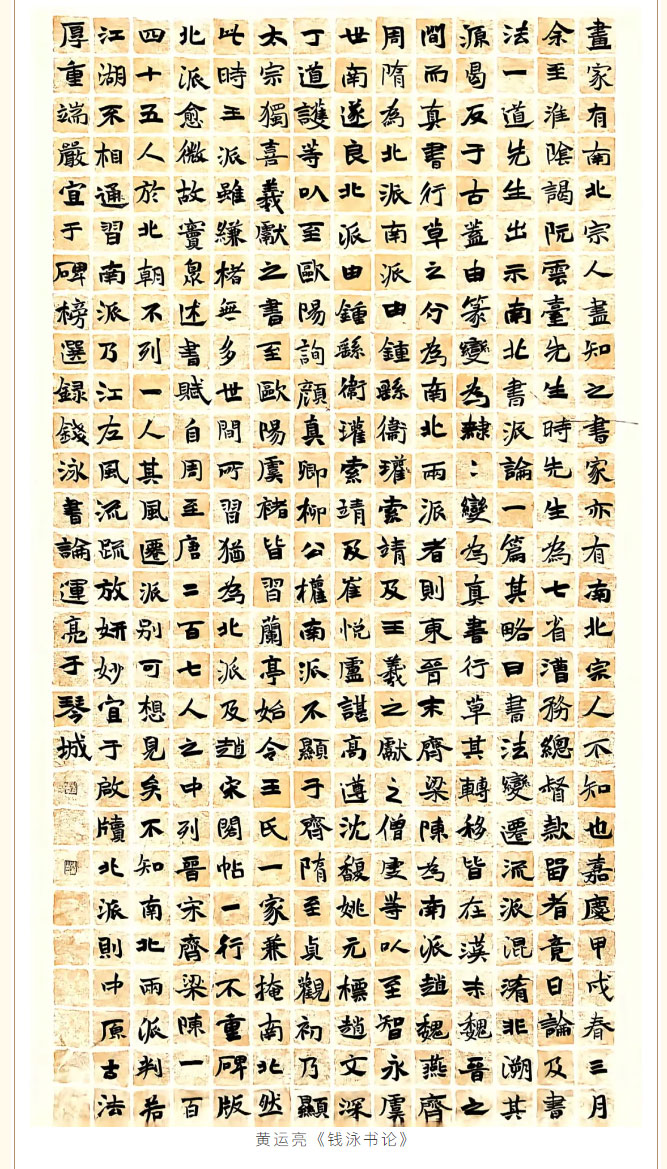 畫家有南北宗人盡知之書家亦有南北宗人不知也嘉慶甲戌春三月
余至淮陰謁阮雲臺先生時先生為七省漕務總督款留者竟日論及書
法一道先生出示南北書派論一篇其略曰書法變遷流派混淆非溯其
源曷反于古蓋由篆變為隸：變為真書行草其轉移皆在漢末魏晉之
間而真書行草之分為南北兩派者則東晉末齊梁陳為南派趙魏燕齊
周隋為北派南派由鍾繇衛瓘索靖及王羲之獻之僧虔等以至智永虞
世南遂良北派由鍾繇衛瓘索靖及崔悅盧諶高遵沈馥姚元標趙文深
丁道護等以至歐陽詢顏真卿柳公權南派不顯于齊隋至貞觀初乃顯
太宗獨喜羲獻之書至歐陽虞褚皆習蘭亭始令王氏一家兼掩南北然
此時王派雖縑楮無多世間所習猶為北派及趙宋閣帖一行不重碑版
北派愈微故竇臮述書賦自周至唐二百七人之中列晉宋齊梁陳一百
四十五人於北朝不列一人其風遷派別可想見矣不知南北兩派判若
江湖不相通習南派乃江左風流疏放妍妙宜于啟牘北派則中原古法
厚重端嚴宜于碑榜選錄錢泳書論運亮于琴城
黄运亮《钱泳书论》